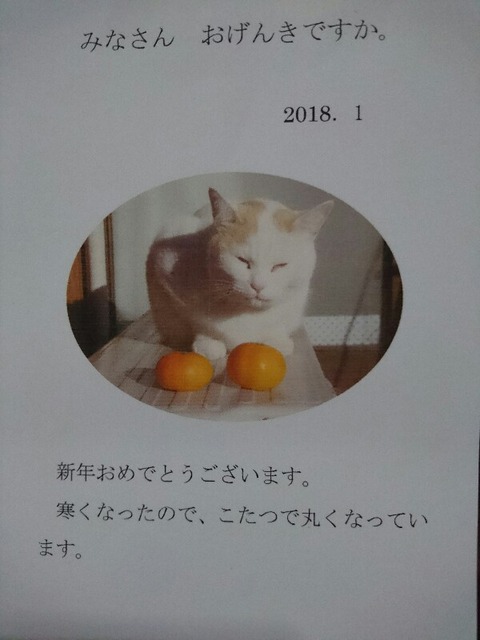 みなさん　おげんきですか。
2018. 1
新年おめでとうございます。
寒くなったので、こたつで丸くなってい
ます。